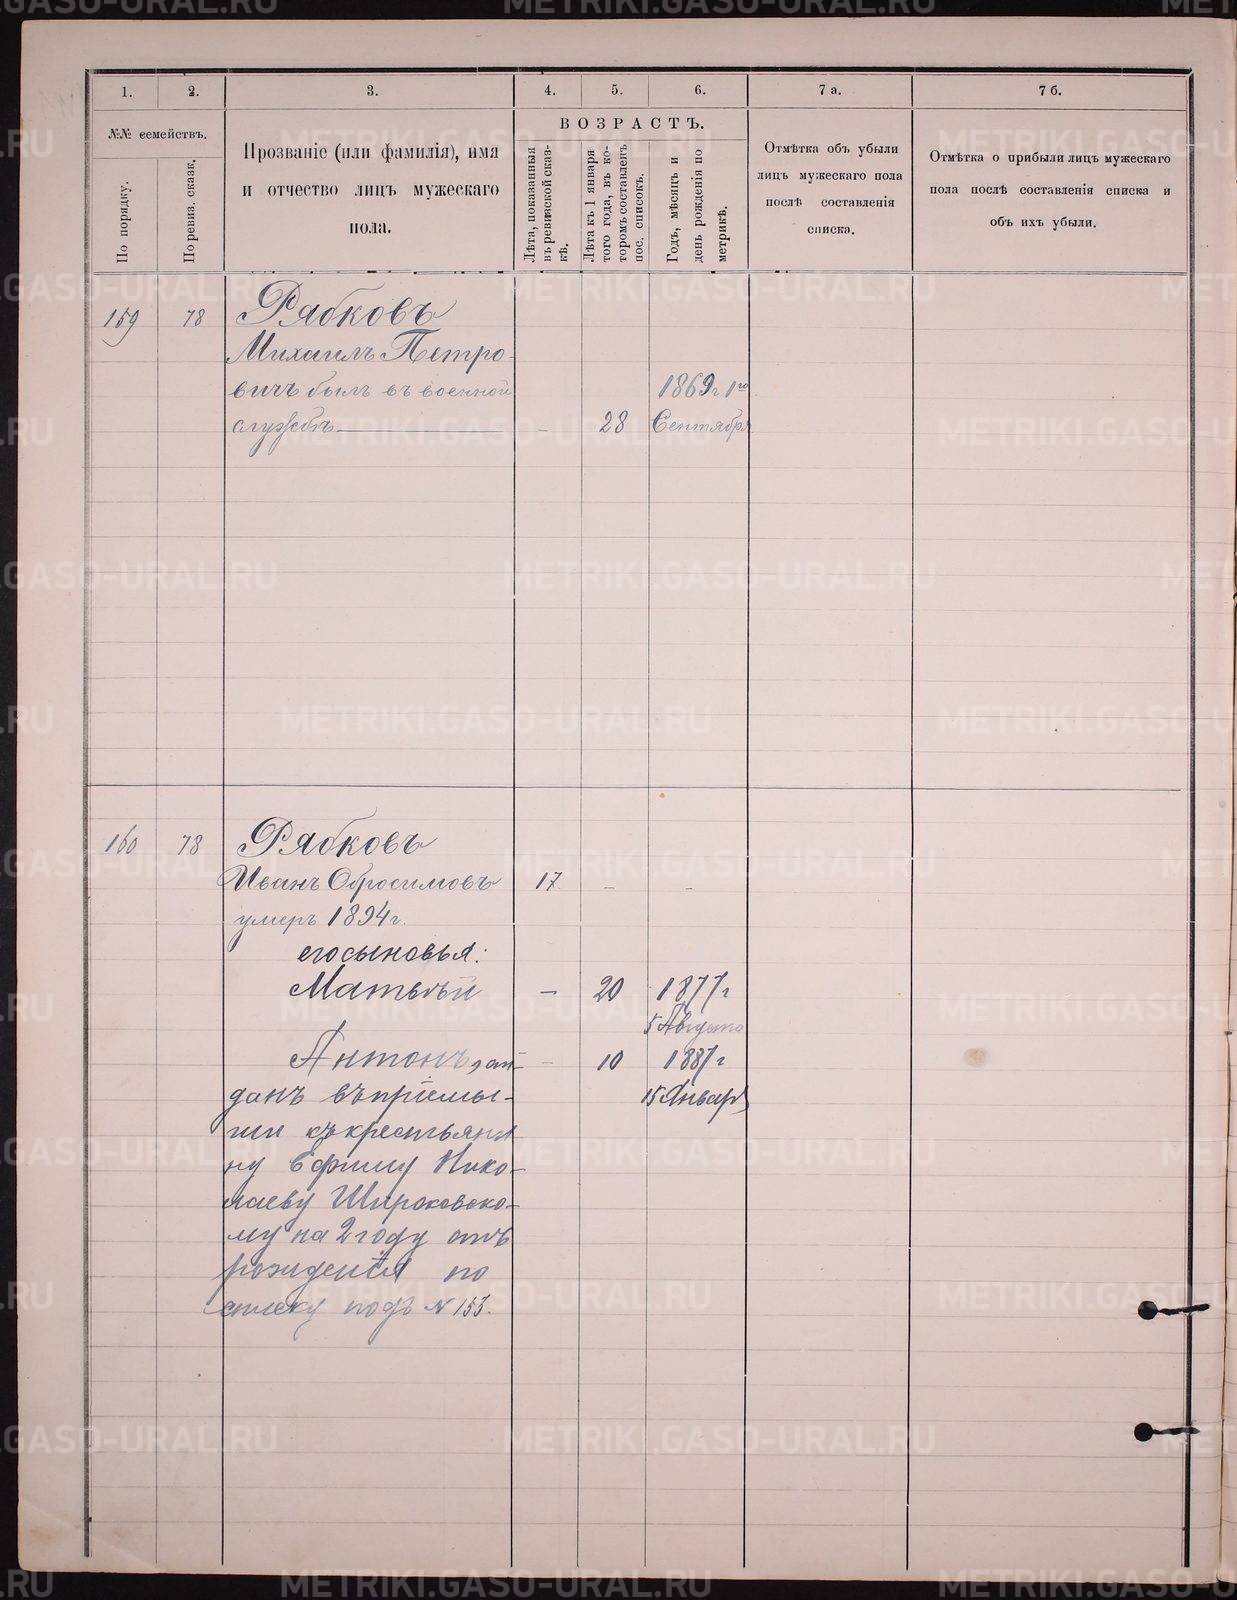 METRIKI.GASO-URAL.RU
1.
2.
3.
4.
5.
6.
7 а.
7 б.
№№ семействъ.
По порядку.
По ревиз. сказк.
Прозваніе (или фамилія), имя
и отчество лицъ мужескаго
пола.
ВОЗРАСТЪ.
Лѣта, показанныя
въ ревизской сказ-
кѣ.
Лѣта къ 1 января
того года, въ ко-
торомъ составленъ
пос. списокъ.
Годъ, мѣсяцъ и
день рожденія по
метрикѣ.
Отмѣтка объ убыли
лицъ мужескаго пола
послѣ составленія
списка.
Отмѣтка о прибыли лицъ мужескаго
пола послѣ составленія списка и
объ ихъ убыли.
159 78 Рябковъ
Михаилъ Петро-
вичъ былъ въ военной 1869 г 1го
службѣ — - 28 Сентября
160 78 Рябковъ
Иванъ Обросимовъ 17 - -
умеръ 1894 г.
его сыновья:
Матвѣй - 20 1877 г
5 Августа
Антонъ, от- - 10 1887 г
данъ въ пріемы- 15 Январ
ши къ крестьяни
ну Ефиму Нико-
лаеву Широковско-
му на 2 году отъ
рожденія по
списку подъ № 153.